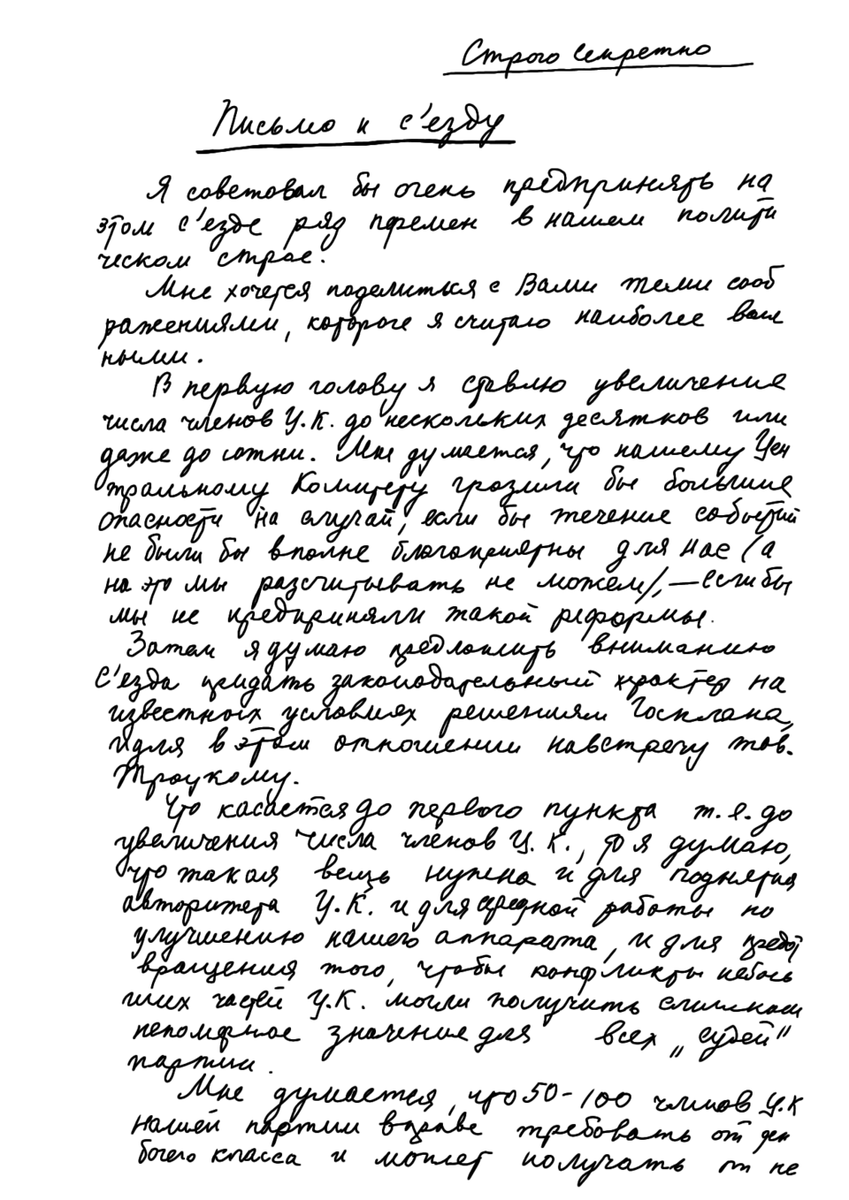 Строго секретно
Письмо к с'езду
Я советовал бы очень предпринять на
этом с'езде ряд перемен в нашем полити
ческом строе.
Мне хочется поделиться с Вами теми сооб
ражениями, которые я считаю наиболее важ
ными.
В первую голову я ставлю увеличение
числа членов Ц.К. до нескольких десятков или
даже до сотни. Мне думается, что нашему Цен
тральному Комитету грозили бы большие
опасности на случай, если бы течение событий
не были бы вполне благоприятны для нас (а
на это мы рассчитывать не можем), — если бы
мы не предприняли такой реформы.
Затем я думаю предложить вниманию
с'езда придать законодательный характер на
известных условиях решениям Госплана,
идя в этом отношении навстречу тов.
Троцкому.
Что касается до первого пункта т.е. до
увеличения числа членов Ц.К., то я думаю,
что такая вещь нужна и для поднятия
авторитета Ц.К. и для средной работы по
улучшению нашего аппарата, и для предот
вращения того, чтобы конфликты неболь
ших частей Ц.К. могли получить слишком
непомерное значение для всех „судей"
партии.
Мне думается, что 50-100 членов Ц.К
нашей партии вправе требовать от
бочего класса и может получать от не